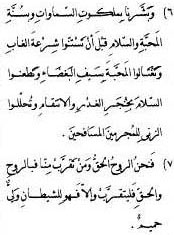 ٦) وبشرنا بملكوت السماوات وسنة
المحبة والسلام قبل أن تستنوا شرعة الغاب
وتغتالوا المحبة بسيف البغضاء وتطعنوا
السلام بخنجر الغدر والانتقام وتحللوا
الزنى للمجرمين المسافحين.
٧) فنحن الروح الحق ومن تقرب منا فبالروح
والحق فليتقرب وإلا فهو للشيطان ولي
حميم.